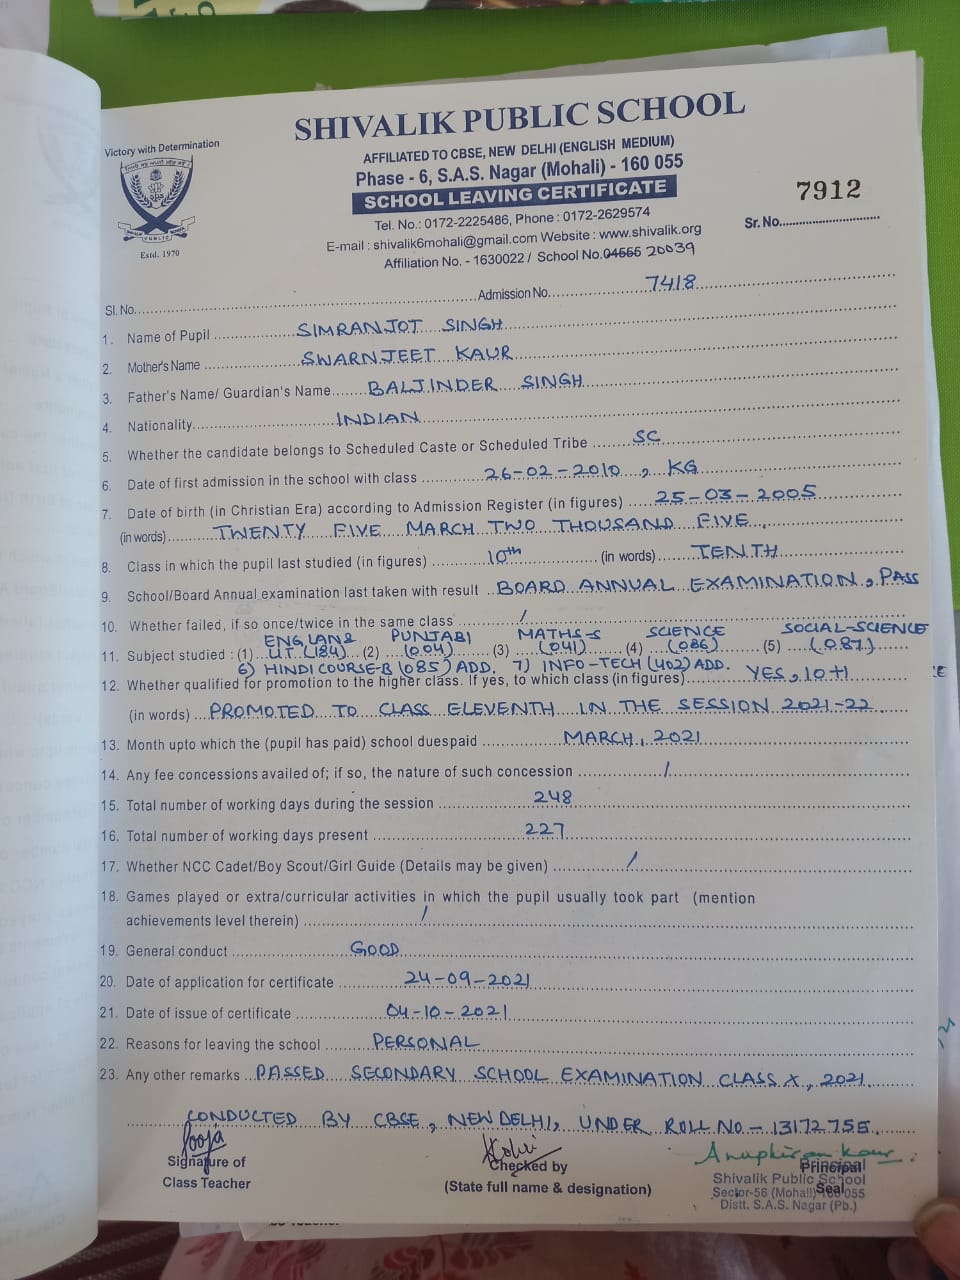 SHIVALIK PUBLIC SCHOOL
Victory with Determination
AFFILIATED TO CBSE, NEW DELHI (ENGLISH MEDIUM)
Phase - 6, S.A.S. Nagar (Mohali) - 160 055
SCHOOL LEAVING CERTIFICATE
7912
Tel. No.: 0172-2225486, Phone : 0172-2629574
Sr. No.
E-mail : shivalik6mohali@gmail.com Website : www.shivalik.org
Estd. 1970
Affiliation No. - 1630022 / School No. 04555 20039
Sl. No. Admission No. 7418
1. Name of Pupil SIMRANJOT SINGH
2. Mother's Name SWARNJEET KAUR
3. Father's Name/ Guardian's Name BALJINDER SINGH
4. Nationality INDIAN
5. Whether the candidate belongs to Scheduled Caste or Scheduled Tribe SC
6. Date of first admission in the school with class 26-02-2010, KG
7. Date of birth (in Christian Era) according to Admission Register (in figures) 25-03-2005
(in words) TWENTY FIVE MARCH TWO THOUSAND FIVE
8. Class in which the pupil last studied (in figures) 10th (in words) TENTH
9. School/Board Annual examination last taken with result BOARD ANNUAL EXAMINATION, PASS
10. Whether failed, if so once/twice in the same class /
ENG LANG PUNJABI MATHS-S SCIENCE SOCIAL-SCIENCE
11. Subject studied : (1) LIT (184) (2) (004) (3) (041) (4) (086) (5) (087)
6) HINDI COURSE-B (085) ADD. 7) INFO-TECH (402) ADD.
12. Whether qualified for promotion to the higher class. If yes, to which class (in figures) YES, 10+1
(in words) PROMOTED TO CLASS ELEVENTH IN THE SESSION 2021-22
13. Month upto which the (pupil has paid) school duespaid MARCH, 2021
14. Any fee concessions availed of; if so, the nature of such concession /
15. Total number of working days during the session 248
16. Total number of working days present 227
17. Whether NCC Cadet/Boy Scout/Girl Guide (Details may be given) /
18. Games played or extra/curricular activities in which the pupil usually took part (mention
achievements level therein) /
19. General conduct GOOD
20. Date of application for certificate 24-09-2021
21. Date of issue of certificate 04-10-2021
22. Reasons for leaving the school PERSONAL
23. Any other remarks PASSED SECONDARY SCHOOL EXAMINATION CLASS X, 2021
CONDUCTED BY CBSE, NEW DELHI, UNDER ROLL NO - 13172755
Pooja
Anupkiran Kaur
Signature of Checked by Principal
Class Teacher (State full name & designation) Seal
Principal
Shivalik Public School
Sector-56 (Mohali) 160 055
Distt. S.A.S. Nagar (Pb.)